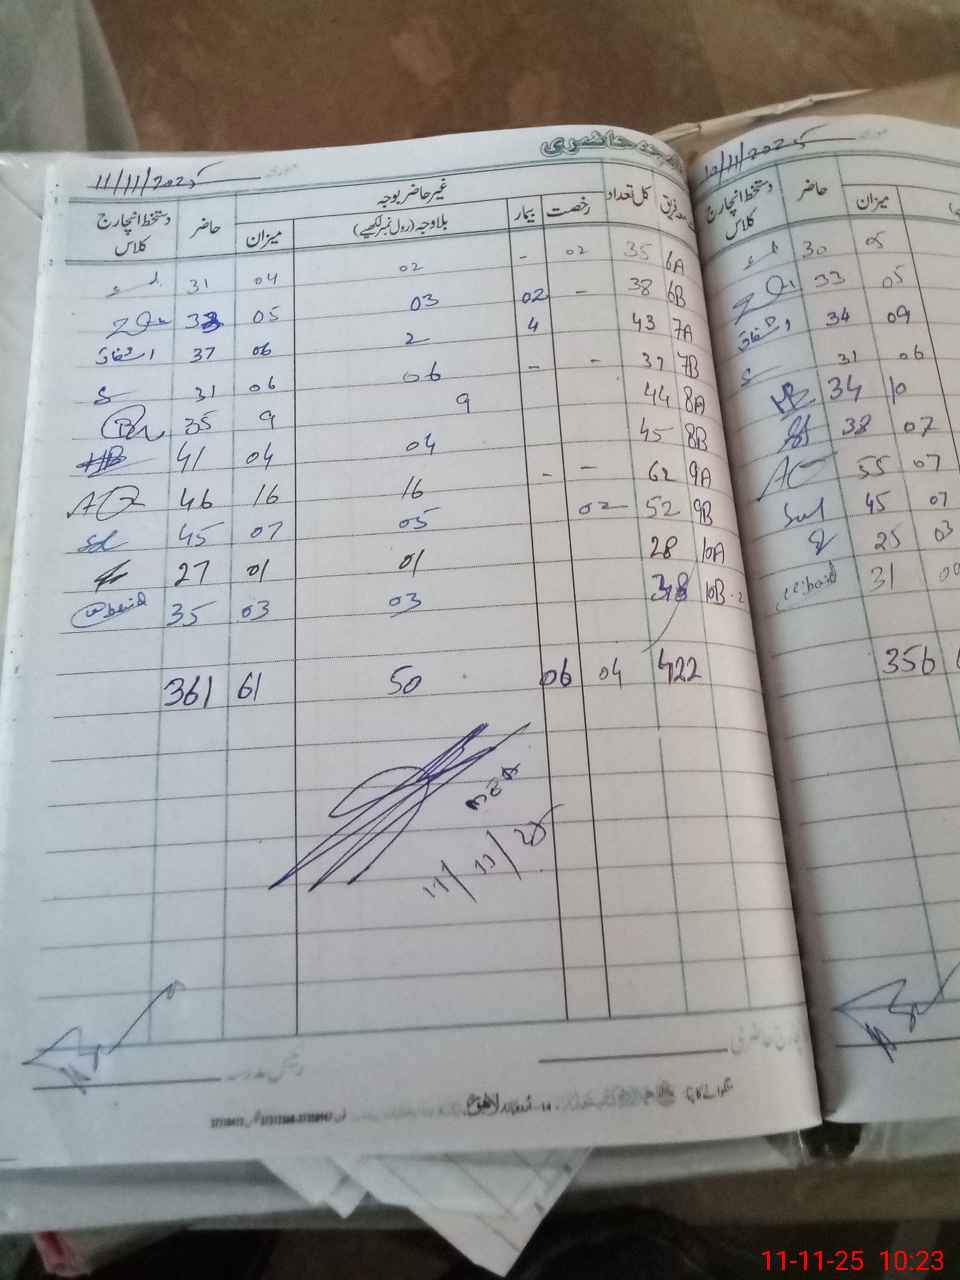 حاضری
11/11/2025
دستخط انچارج کلاس حاضر غیر حاضر بوجہ کل تعداد
میزان بلاوجہ (رول نمبر لکھیے) بیمار رخصت
31 04 02 - 02 35 6A
33 05 03 02 - 38 6B
اشفاق 37 06 2 4 43 7A
S 31 06 06 - - 37 7B
35 9 9 44 8A
HB 41 04 04 45 8B
46 16 16 - - 62 9A
45 07 05 02 52 9B
27 01 01 28 10A
35 03 03 38 10B
361 61 50 06 04 422
11/11/25
رئیس مدرسہ
انچارج حاضری
لاہور
10/11/2025
دستخط انچارج کلاس حاضر میزان
30 05
33 05
اشفاق 34 09
S 31 06
HB 34 10
38 07
55 07
45 07
25 03
31
356
11-11-25 10:23